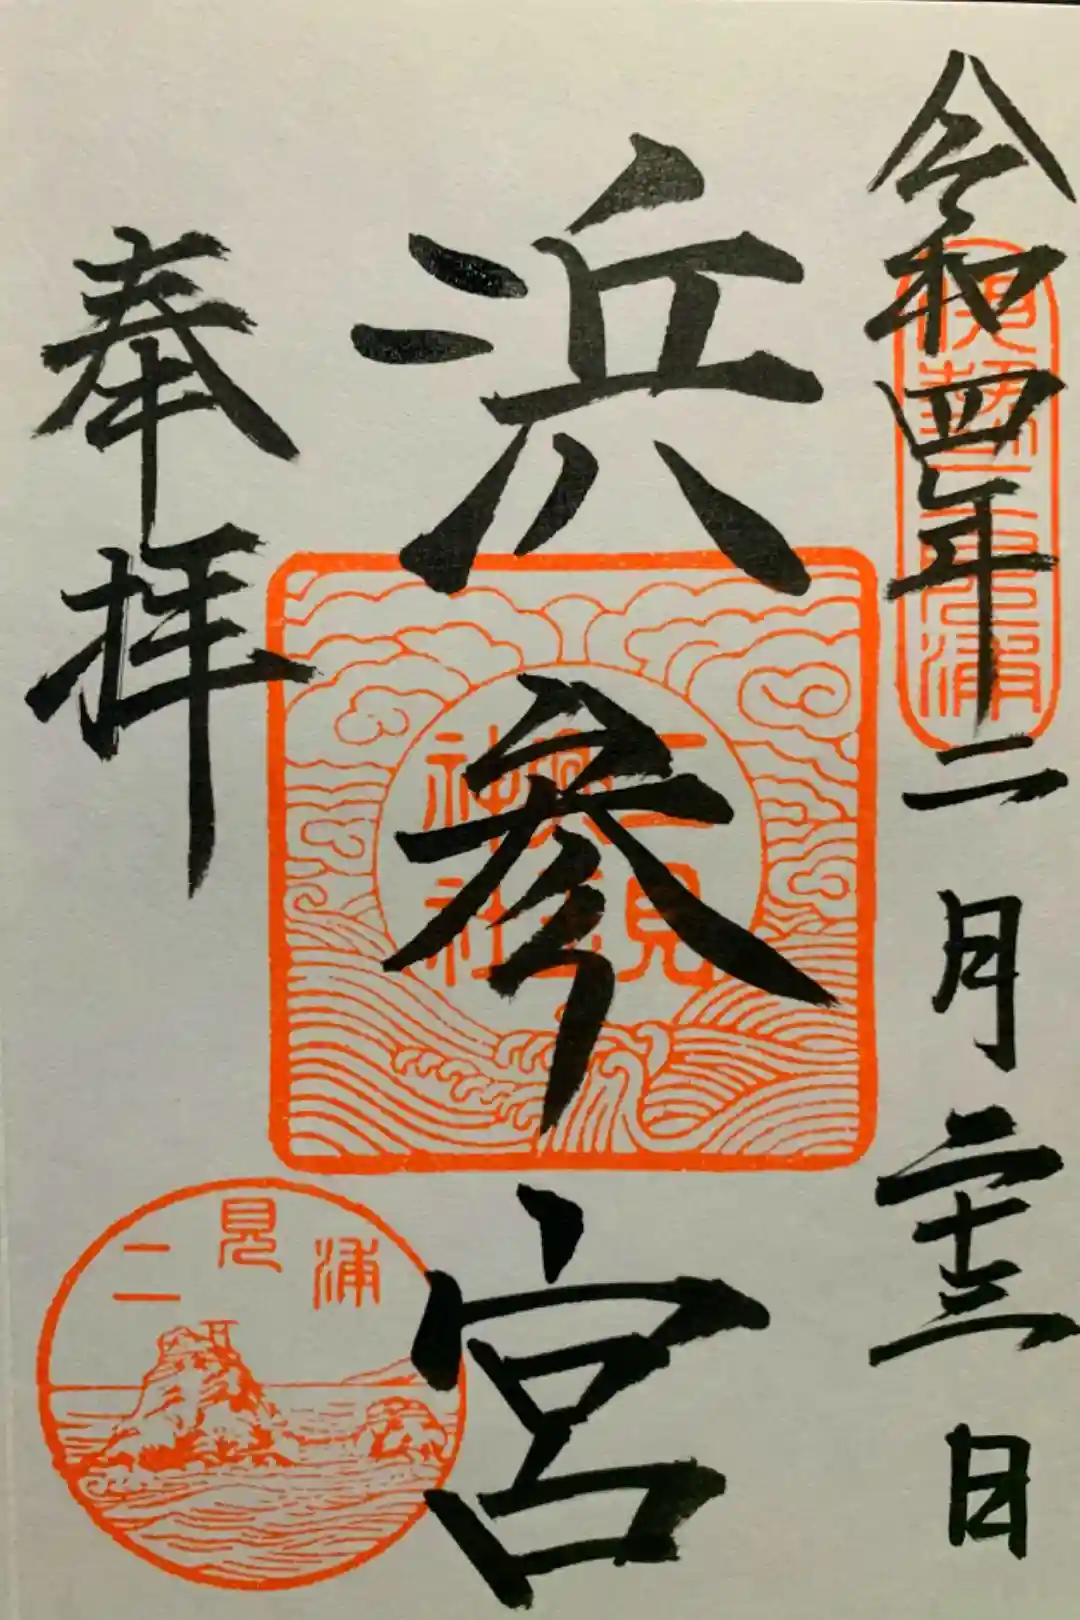 令和四年二月二十三日
伊勢二見浦
浜参宮
二見
興玉
神社
奉拝
二見浦